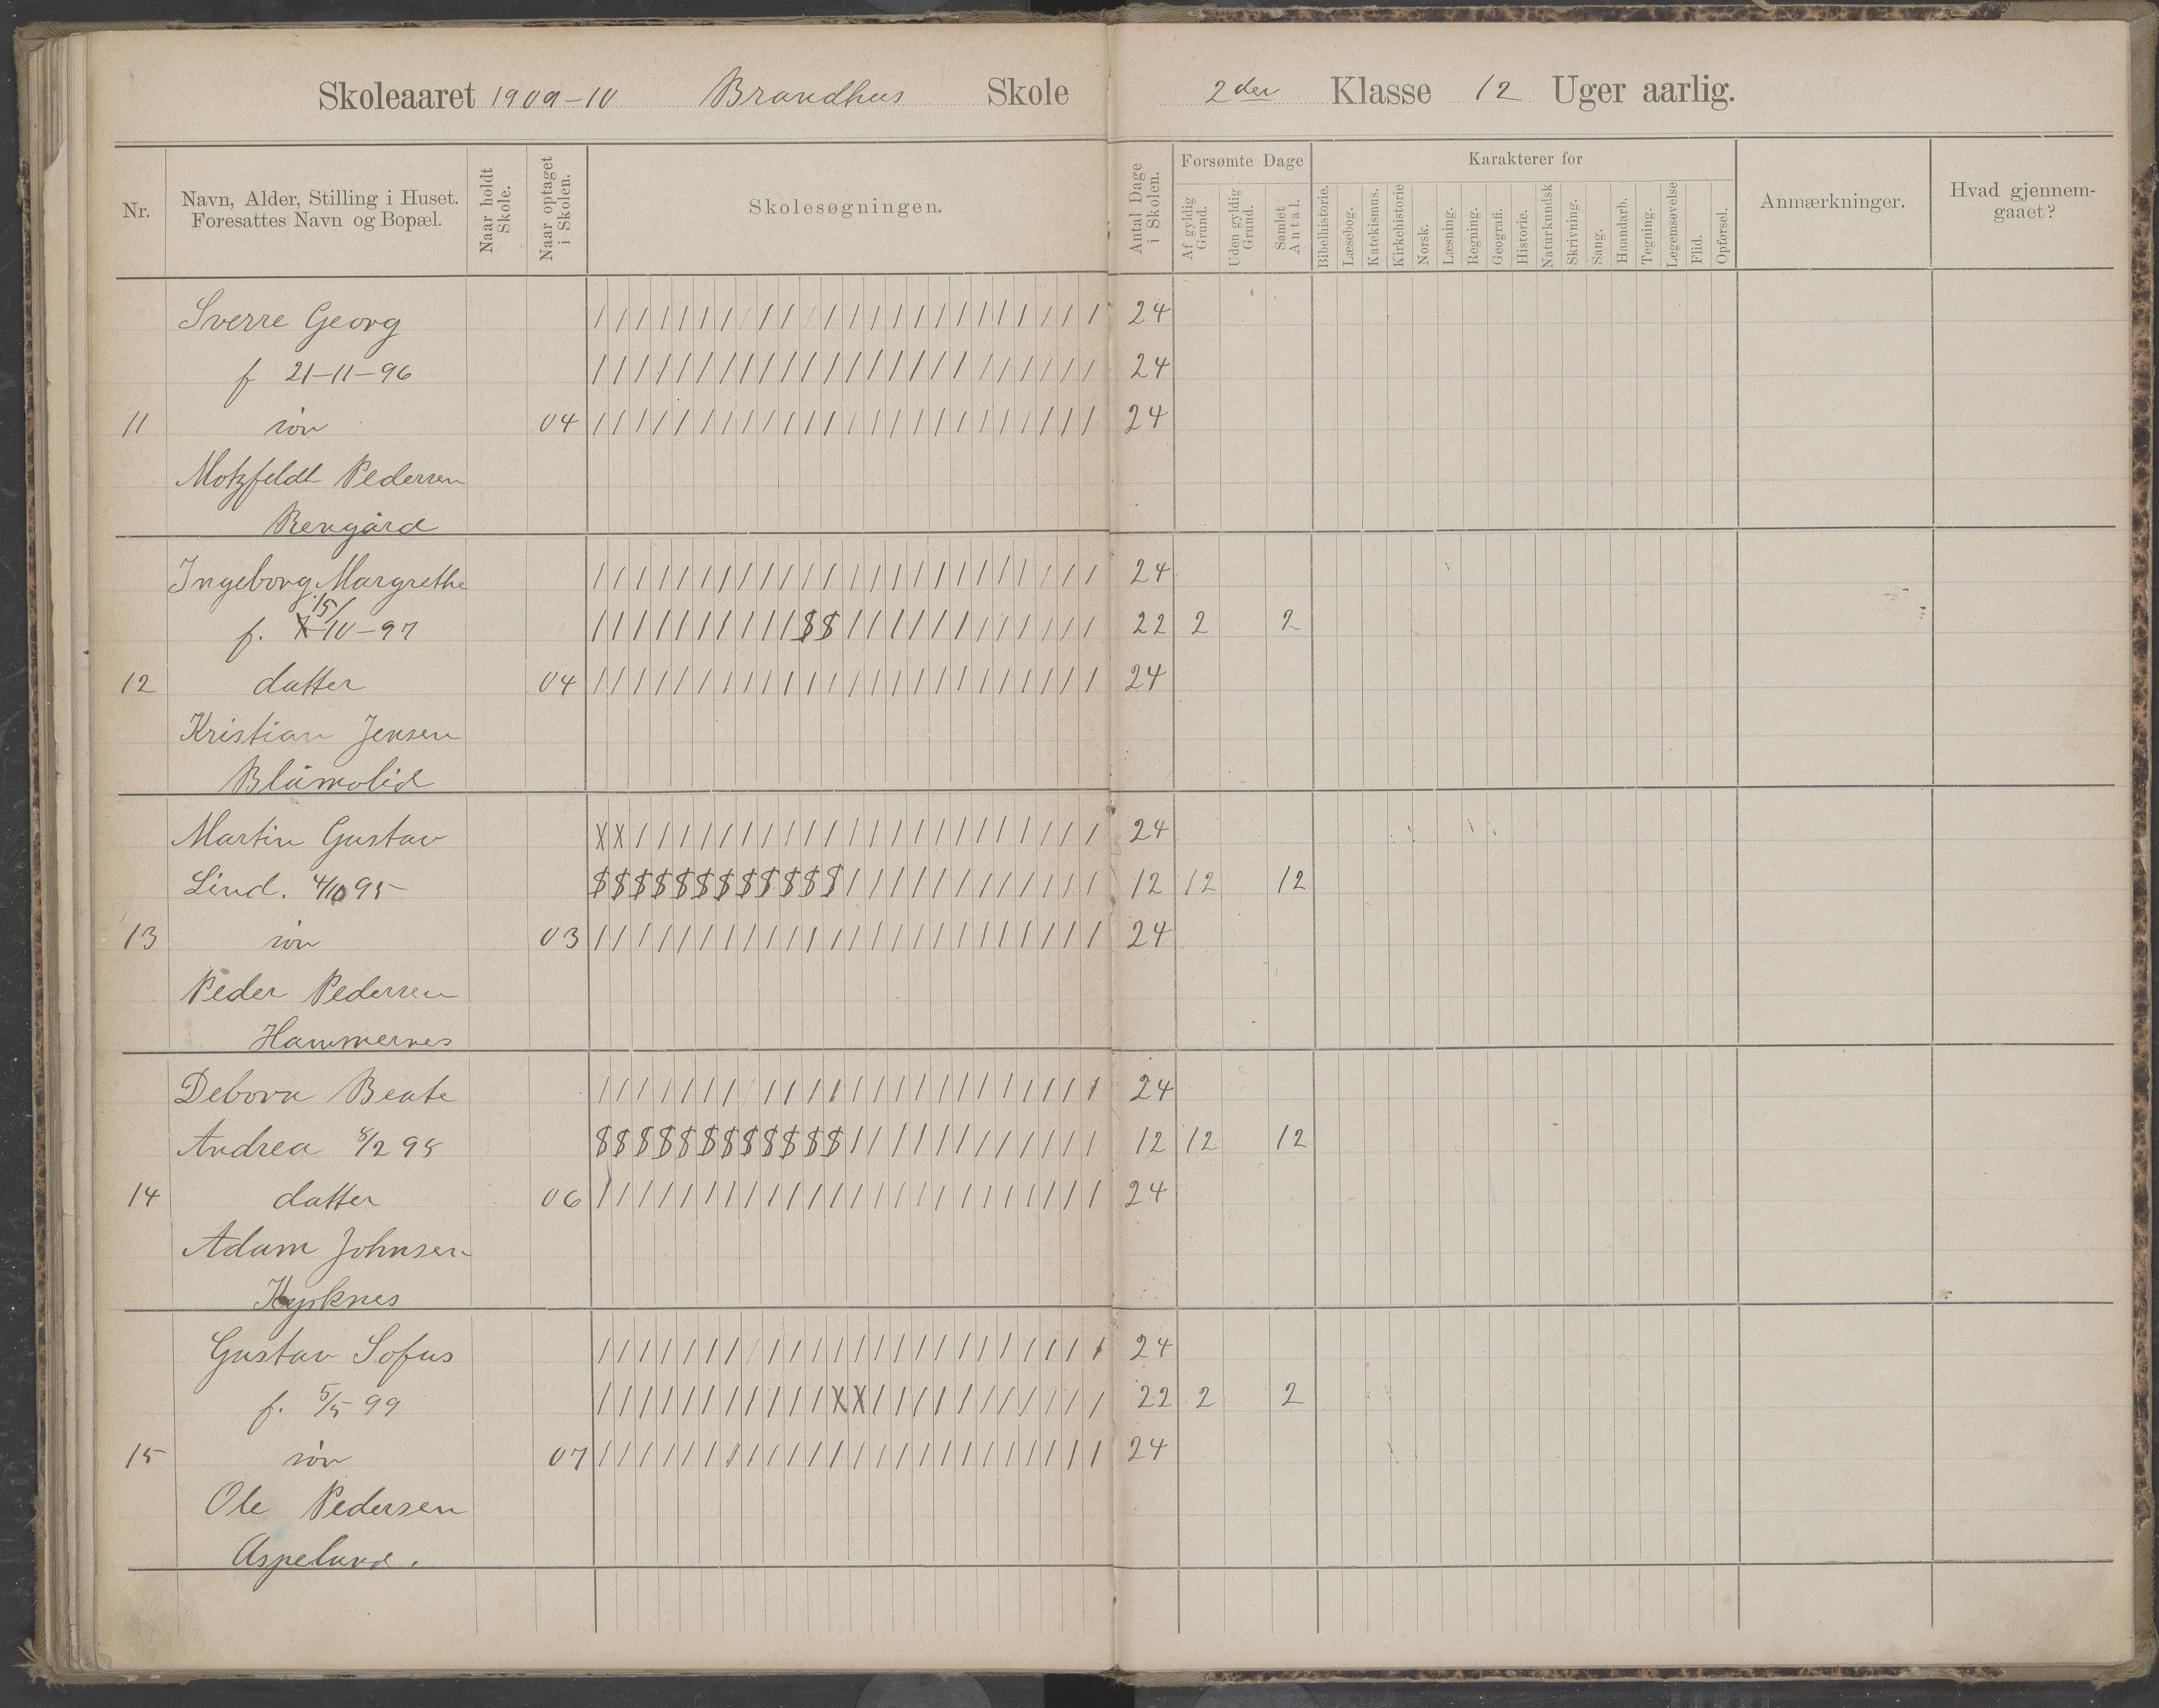 Skoleaaret 1909-10 Brandhus Skole 2den Klasse 12 Uger aarlig.
Nr.
Navn, Alder, Stilling i Huset.
Foresattes Navn og Bopæl.
Naar holdt
Skole.
Naar optaget
i Skolen.
Skolesøgningen.
Antal Dage
i Skolen.
Forsømte Dage
Af gyldig
Grund.
Uden gyldig
Grund.
Samlet
Antal.
Karakterer for
Bibelhistorie.
Læsebog.
Katekismus.
Kirkehistorie
Norsk.
Læsning.
Regning.
Geografi.
Historie.
Naturkundsk
Skrivning.
Sang.
Haandarb.
Tegning.
Legemsøvelse
Flid.
Opførsel.
Anmærkninger.
Hvad gjennem-
gaaet?
Sverre Georg 24
f 21-11-96 24
11 søn 04 24
Motzfeldt Pedersen
Rengård
Ingeborg Margrethe 24
15/
f. 10-97 22 2 2
12 datter 04 24
Kristian Jensen
Blåmolid
Martin Gustav 24
Lind. 4/10 95 12 12 12
13 søn 03 24
Peder Pedersen
Hammernes
Debora Beate 24
Andrea 8/2 98 12 12 12
14 datter 06 24
Adam Johnsen
Gustav Sofus 24
f. 5/5 99 22 2 2
15 søn 07 24
Ole Pedersen
Aspelund.